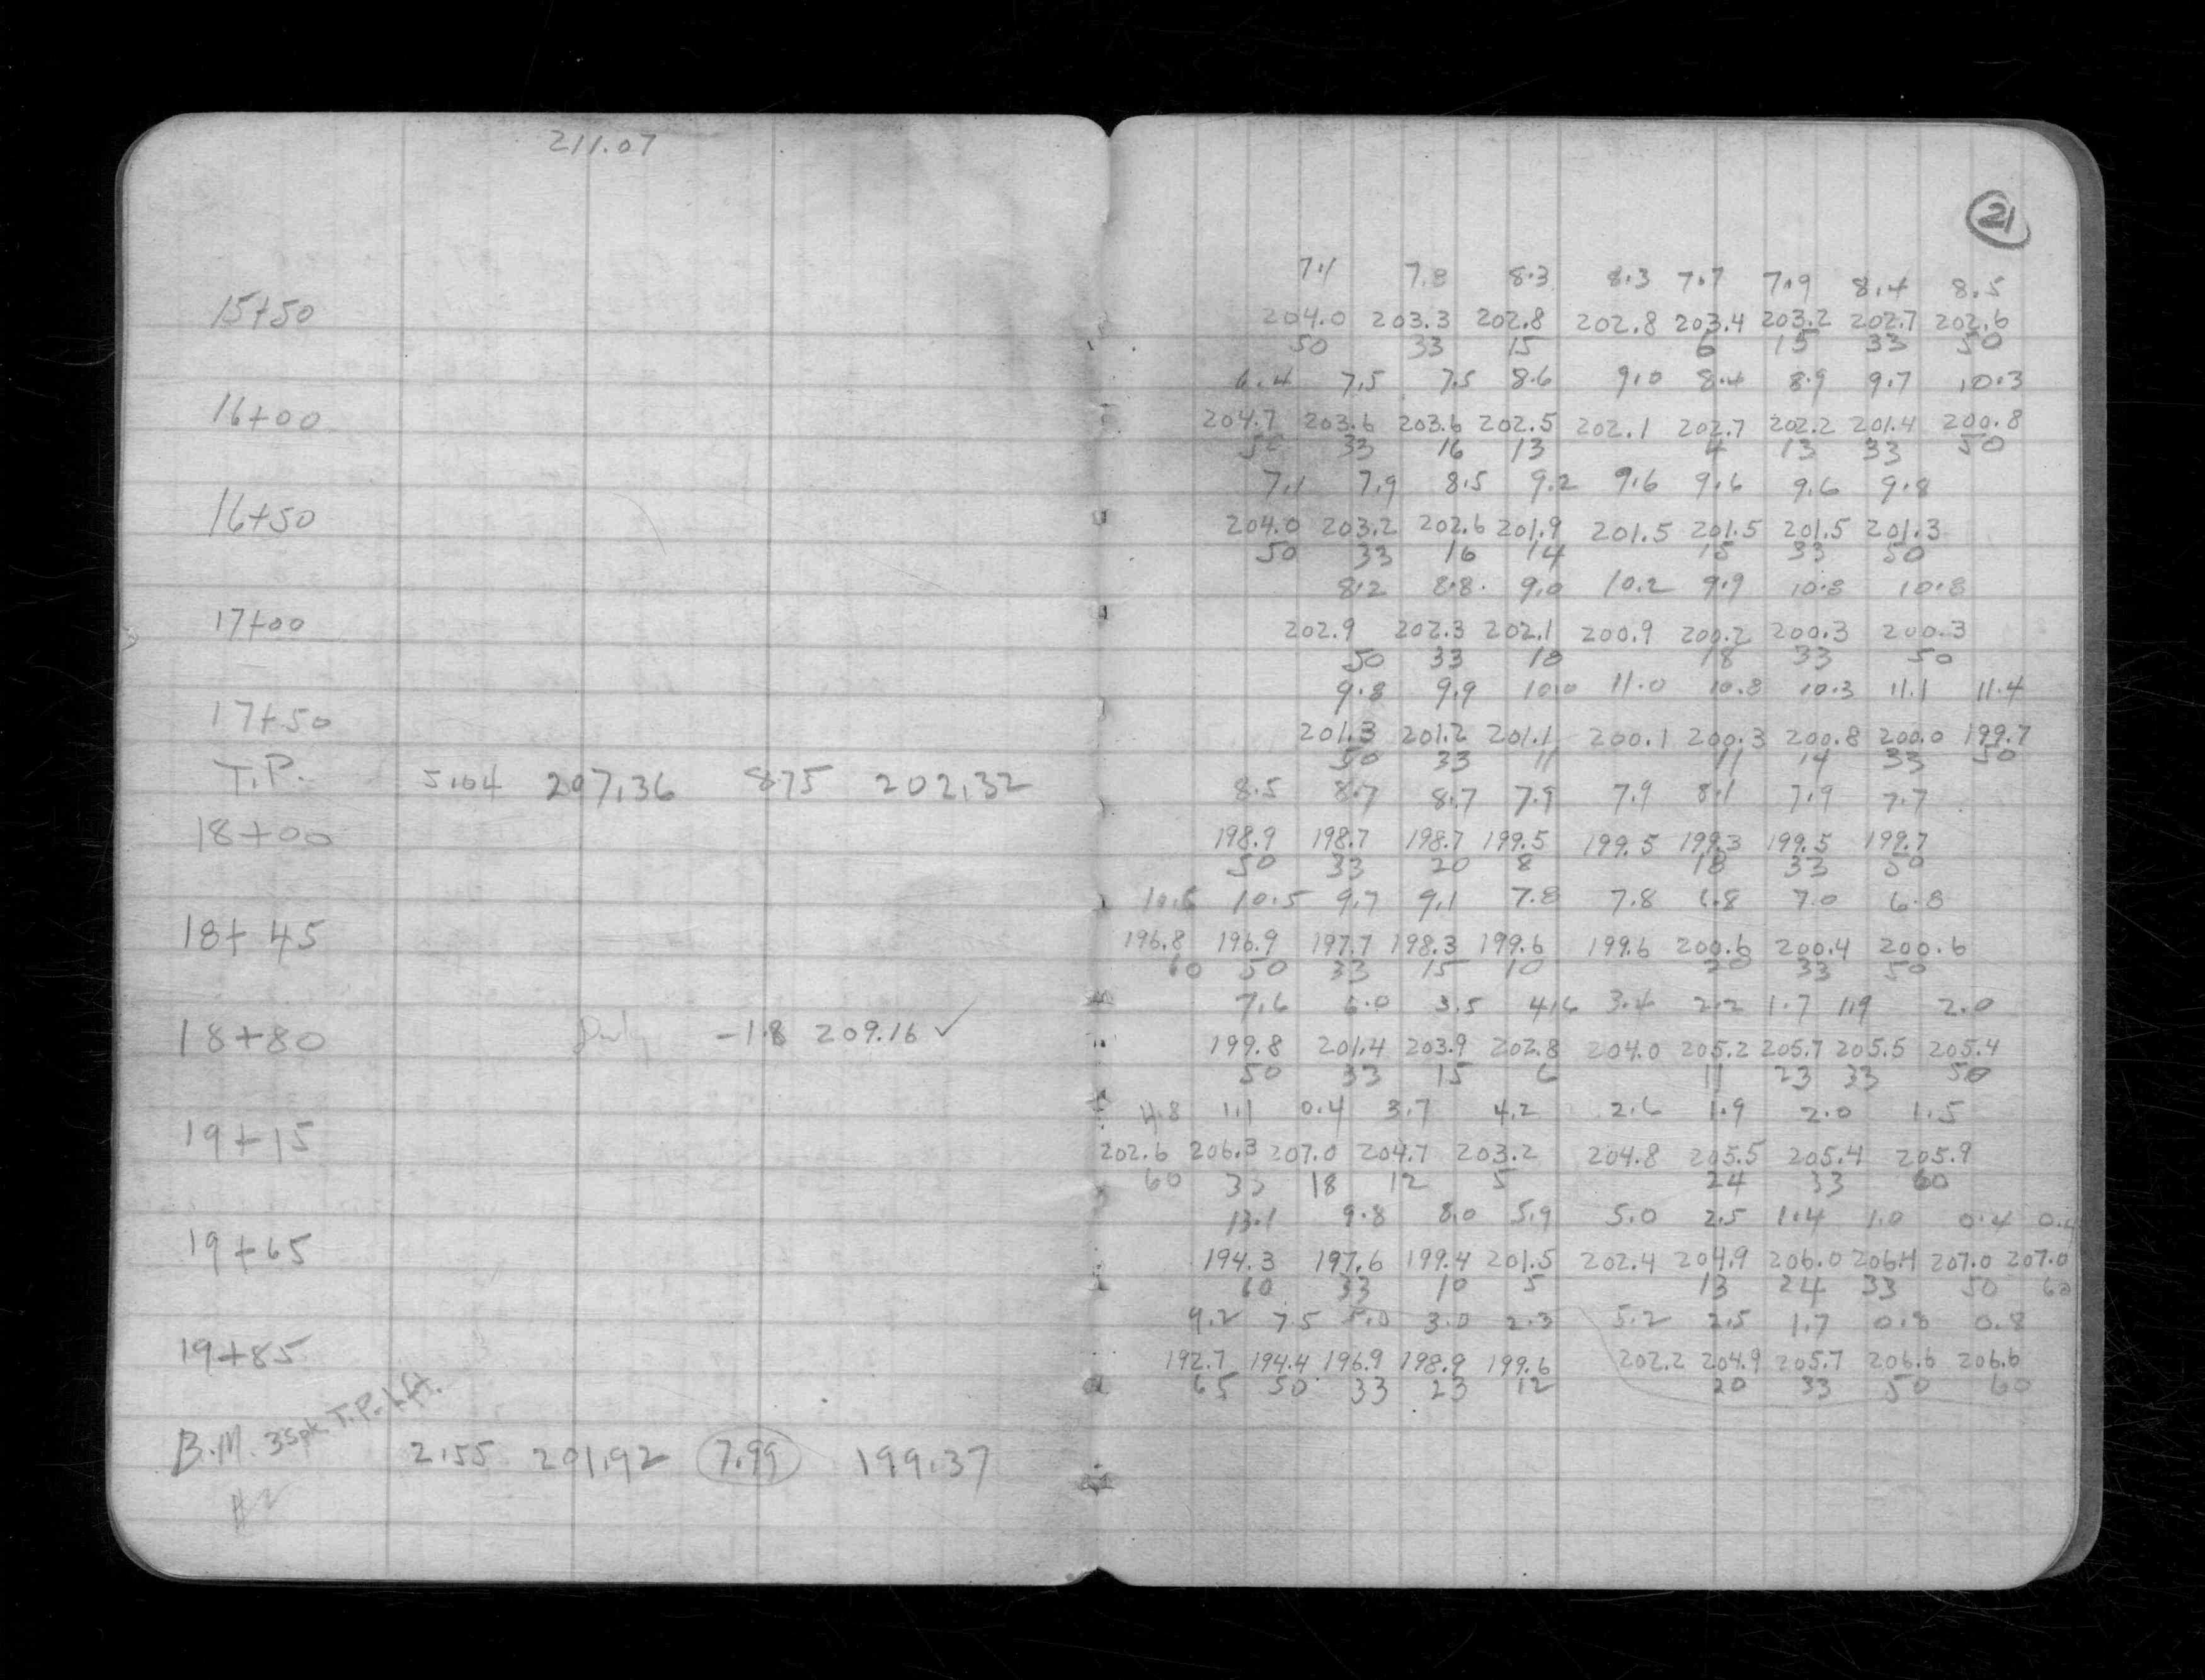 211.07
21
7.1 7.8 8.3 8.3 7.7 7.9 8.4 8.5
15+50 204.0 203.3 202.8 202.8 203.4 203.2 202.7 202.6
50 33 15 6 15 33 50
6.4 7.5 7.5 8.6 9.0 8.4 8.9 9.7 10.3
16+00 204.7 203.6 203.6 202.5 202.1 202.7 202.2 201.4 200.8
50 33 16 13 4 13 33 50
7.1 7.9 8.5 9.2 9.6 9.6 9.6 9.8
16+50 204.0 203.2 202.6 201.9 201.5 201.5 201.5 201.3
50 33 16 14 15 33 50
8.2 8.8 9.0 10.2 9.9 10.8 10.8
17+00 202.9 202.3 202.1 200.9 200.2 200.3 200.3
50 33 10 18 33 50
9.8 9.9 10.0 11.0 10.8 10.3 11.1 11.4
17+50 201.3 201.2 201.1 200.1 200.3 200.8 200.0 199.7
50 33 11 11 14 33 50
T.P. 5.04 207.36 8.75 202.32
8.5 8.7 8.7 7.9 7.9 8.1 7.9 7.7
18+00 198.9 198.7 198.7 199.5 199.5 199.3 199.5 199.7
50 33 20 8 18 33 50
10.6 10.5 9.7 9.1 7.8 7.8 6.8 7.0 6.8
18+45 196.8 196.9 197.7 198.3 199.6 199.6 200.6 200.4 200.6
60 50 33 15 10 20 33 50
7.6 6.0 3.5 4.6 3.4 2.2 1.7 1.9 2.0
18+80 -1.8 209.16 ✓ 199.8 201.4 203.9 202.8 204.0 205.2 205.7 205.5 205.4
50 33 15 6 11 23 33 50
4.8 1.1 0.4 3.7 4.2 2.6 1.9 2.0 1.5
19+15 202.6 206.3 207.0 204.7 203.2 204.8 205.5 205.4 205.9
60 33 18 12 5 24 33 60
13.1 9.8 8.0 5.9 5.0 2.5 1.4 1.0 0.4 0.4
19+65 194.3 197.6 199.4 201.5 202.4 204.9 206.0 206.4 207.0 207.0
60 33 10 5 13 24 33 50 60
9.2 7.5 5.0 3.0 2.3 5.2 2.5 1.7 0.8 0.8
19+85 192.7 194.4 196.9 198.9 199.6 202.2 204.9 205.7 206.6 206.6
65 50 33 23 12 20 33 50 60
B.M. 3spk T.P. Lft. 2.55 201.92 7.99 199.37
#2